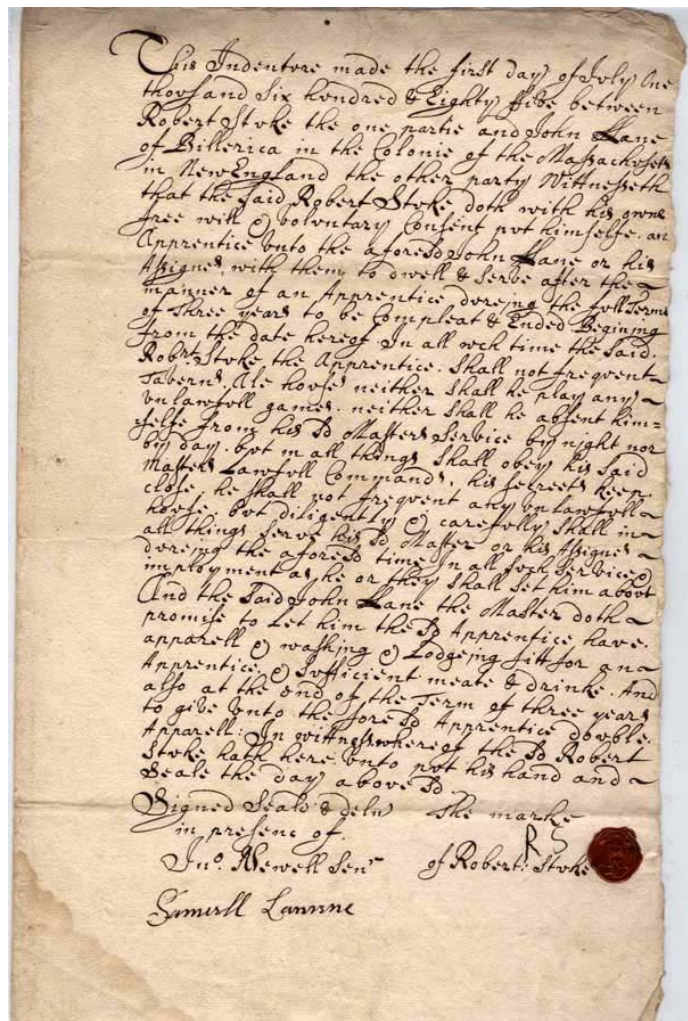 This Indenture made the first day of July One
thousand Six hundred & Eighty ffive between
Robert Stoke the one partie and John Lane
of Billerica in the Colonie of the Massachosets
in New England the other party Wittnesseth
that the said Robert Stoke doth with his owne
free will & voluntary Consent put himselfe an
Apprentice unto the aforesd John Lane or his
Assignes, with them to dwell & Serve after the
manner of an Apprentice dureing the full Terme
of three years to be Compleat & Ended Begining
from the date hereof In all wch time the said
Robert Stoke the Apprentice. Shall not frequent
Taverns, Ale houses neither Shall he play any
unlawfull games. neither shall he absent him=
selfe from his Sd Masters Service by night nor
by day. but in all things Shall obey his Said
Masters Lawfull Commands, his secreets keep
close, he shall not frequent any unlawfull
house, but diligently & carefully Shall in
all things Serve his Sd Master or his Assignes
dureing the aforesd time In all such Service &
imployment as he or they shall set him about
And the said John Lane the Master doth
promise to Let him the Sd Apprentice have
apparell & washing & Lodgeing fitt for an
Apprentice, & Sufficient meate & drinke. And
also at the end of the Term of three years
to give unto the fore Sd Apprentice double
Apparell: In wittness whereof the Sd Robert
Stoke hath here unto put his hand and
Seale the day above Sd
Signed Seald & delrd The marke
in presence of. R S
Jno. Newell Senr of Robert Stoke
Samuell